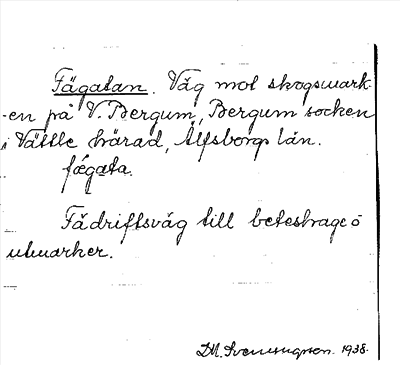 Fägatan. Väg mot skogsmark-
en på V. Bergum, Bergum socken
i Vättle härad, Älfsborgs län.
fǽgata.
Fädriftsväg till beteshage o
utmarker.
D.M. Svenungsson. 1938.